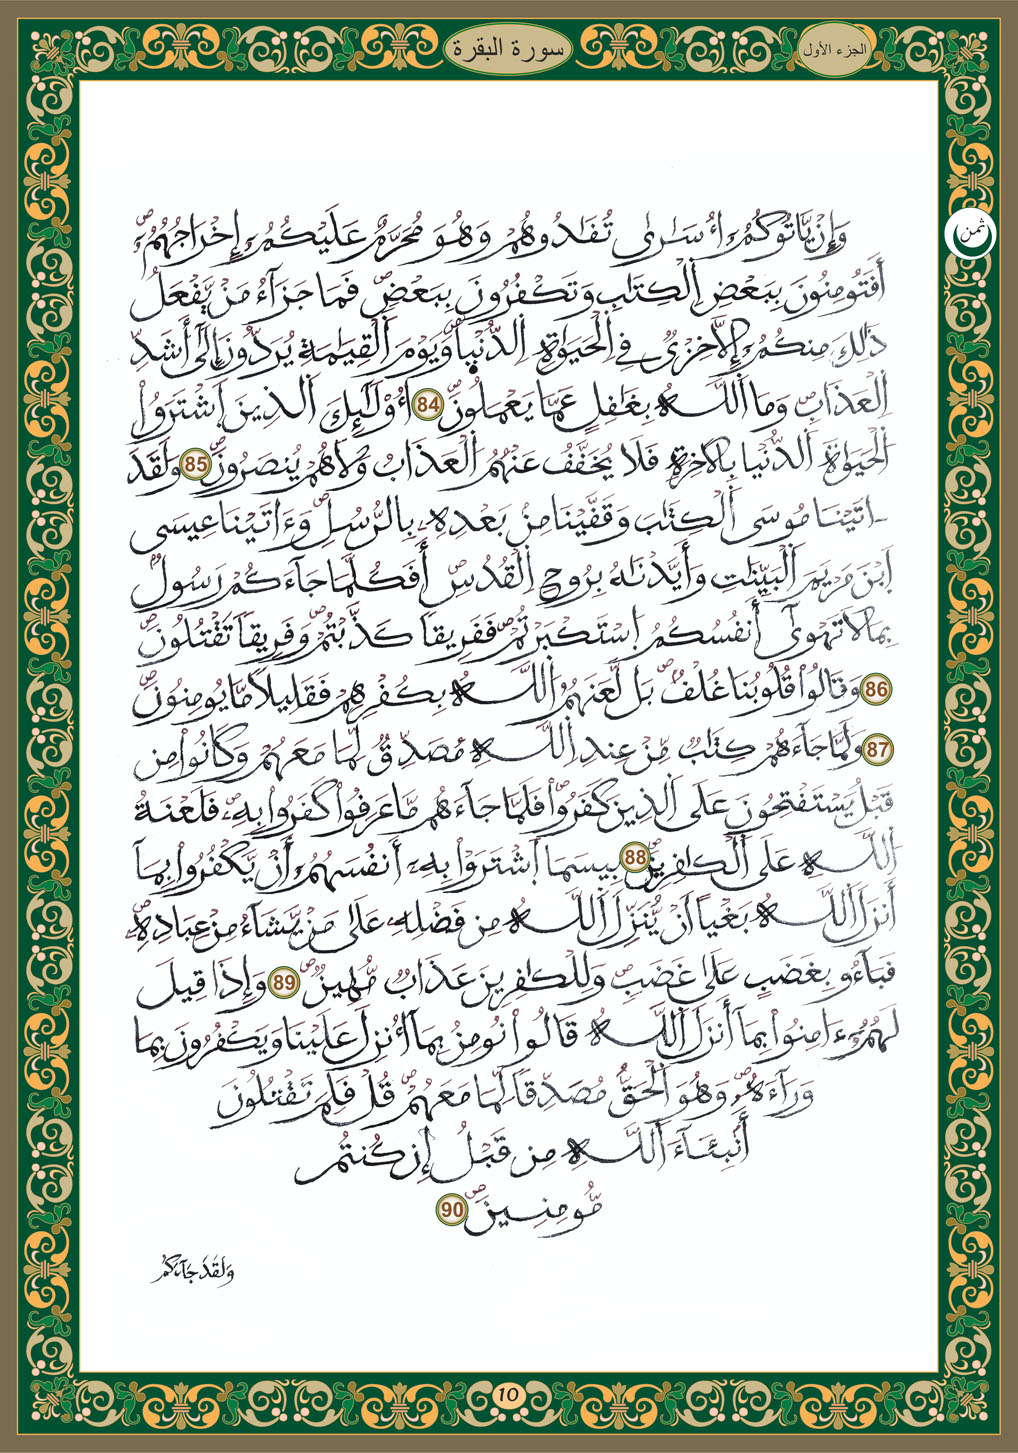 الجزء الأول
سورة البقرة
ثمن
وَإِنْ يَّاتُوكُمُۥٓ أُسَٰرىٰ تُفَٰدُوهُمْ وَهُوَ مُحَرَّمٌ عَلَيْكُمُۥٓ إِخْرَاجُهُمُۥٓ
أَفَتُومِنُونَ بِبَعْضِ اِلْكِتَٰبِ وَتَكْفُرُونَ بِبَعْضٖ فَمَا جَزَآءُ مَنْ يَّفْعَلُ
ذَٰلِكَ مِنكُمُۥٓ إِلَّا خِزْيٌ فِے اِلْحَيَوٰةِ اِلدُّنْيٖا وَيَوْمَ اَلْقِيَٰمَةِ يُرَدُّونَ إِلَيٰٓ أَشَدِّ
اِلْعَذَابِ وَمَا اَللَّهُ بِغَٰفِلٍ عَمَّا يَعْمَلُونَ 84 أُوْلَٰٓئِكَ اَلذِينَ اَشْتَرَوُاْ
اُلْحَيَوٰةَ اَلدُّنْيٖا بِالَاخِرَةِ فَلَا يُخَفَّفُ عَنْهُمُ اُلْعَذَابُ وَلَا هُمْ يُنصَرُونَ 85 وَلَقَدَ
اٰتَيْنَا مُوسَى اَلْكِتَٰبَ وَقَفَّيْنَا مِنۢ بَعْدِهِۦ بِالرُّسُلِ وَءَاتَيْنَا عِيسَى
اَبْنَ مَرْيَمَ اَلْبَيِّنَٰتِ وَأَيَّدْنَٰهُ بِرُوحِ اِلْقُدُسِ أَفَكُلَّمَا جَآءَكُمْ رَسُولٌۢ
بِمَا لَا تَهْوىٰٓ أَنفُسُكُمُ اُسْتَكْبَرْتُمْ فَفَرِيقاً كَذَّبْتُمْ وَفَرِيقاً تَقْتُلُونَ
86 وَقَالُواْ قُلُوبُنَا غُلْفٌ بَل لَّعَنَهُمُ اُللَّهُ بِكُفْرِهِمْ فَقَلِيلاً مَّا يُومِنُونَ
87 وَلَمَّا جَآءَهُمْ كِتَٰبٌ مِّنْ عِندِ اِللَّهِ مُصَدِّقٌ لِّمَا مَعَهُمْ وَكَانُواْ مِن
قَبْلُ يَسْتَفْتِحُونَ عَلَى اَلذِينَ كَفَرُواْ فَلَمَّا جَآءَهُم مَّا عَرَفُواْ كَفَرُواْ بِهِۦ فَلَعْنَةُ
اُللَّهِ عَلَى اَلْكٰفِرِينَ 88 بِيسَمَا اَشْتَرَوْاْ بِهِۦٓ أَنفُسَهُمُۥٓ أَنْ يَّكْفُرُواْ بِمَآ
أَنزَلَ اَللَّهُ بَغْياً اَنْ يُّنَزِّلَ اَللَّهُ مِن فَضْلِهِۦ عَلَىٰ مَنْ يَّشَآءُ مِنْ عِبَادِهِۦ
فَبَآءُو بِغَضَبٍ عَلَىٰ غَضَبٍ وَلِلْكٰفِرِينَ عَذَابٌ مُّهِينٌ 89 وَإِذَا قِيلَ
لَهُمُۥٓ ءَامِنُواْ بِمَآ أَنزَلَ اَللَّهُ قَالُواْ نُومِنُ بِمَآ أُنزِلَ عَلَيْنَا وَيَكْفُرُونَ بِمَا
وَرَآءَهُۥ وَهُوَ اَلْحَقُّ مُصَدِّقاً لِّمَا مَعَهُمْ قُلْ فَلِمَ تَقْتُلُونَ
أَنۢبِئَآءَ اَللَّهِ مِن قَبْلُ إِن كُنتُم
مُّومِنِينَ 90
وَلَقَدْ جَآءَكُم
10